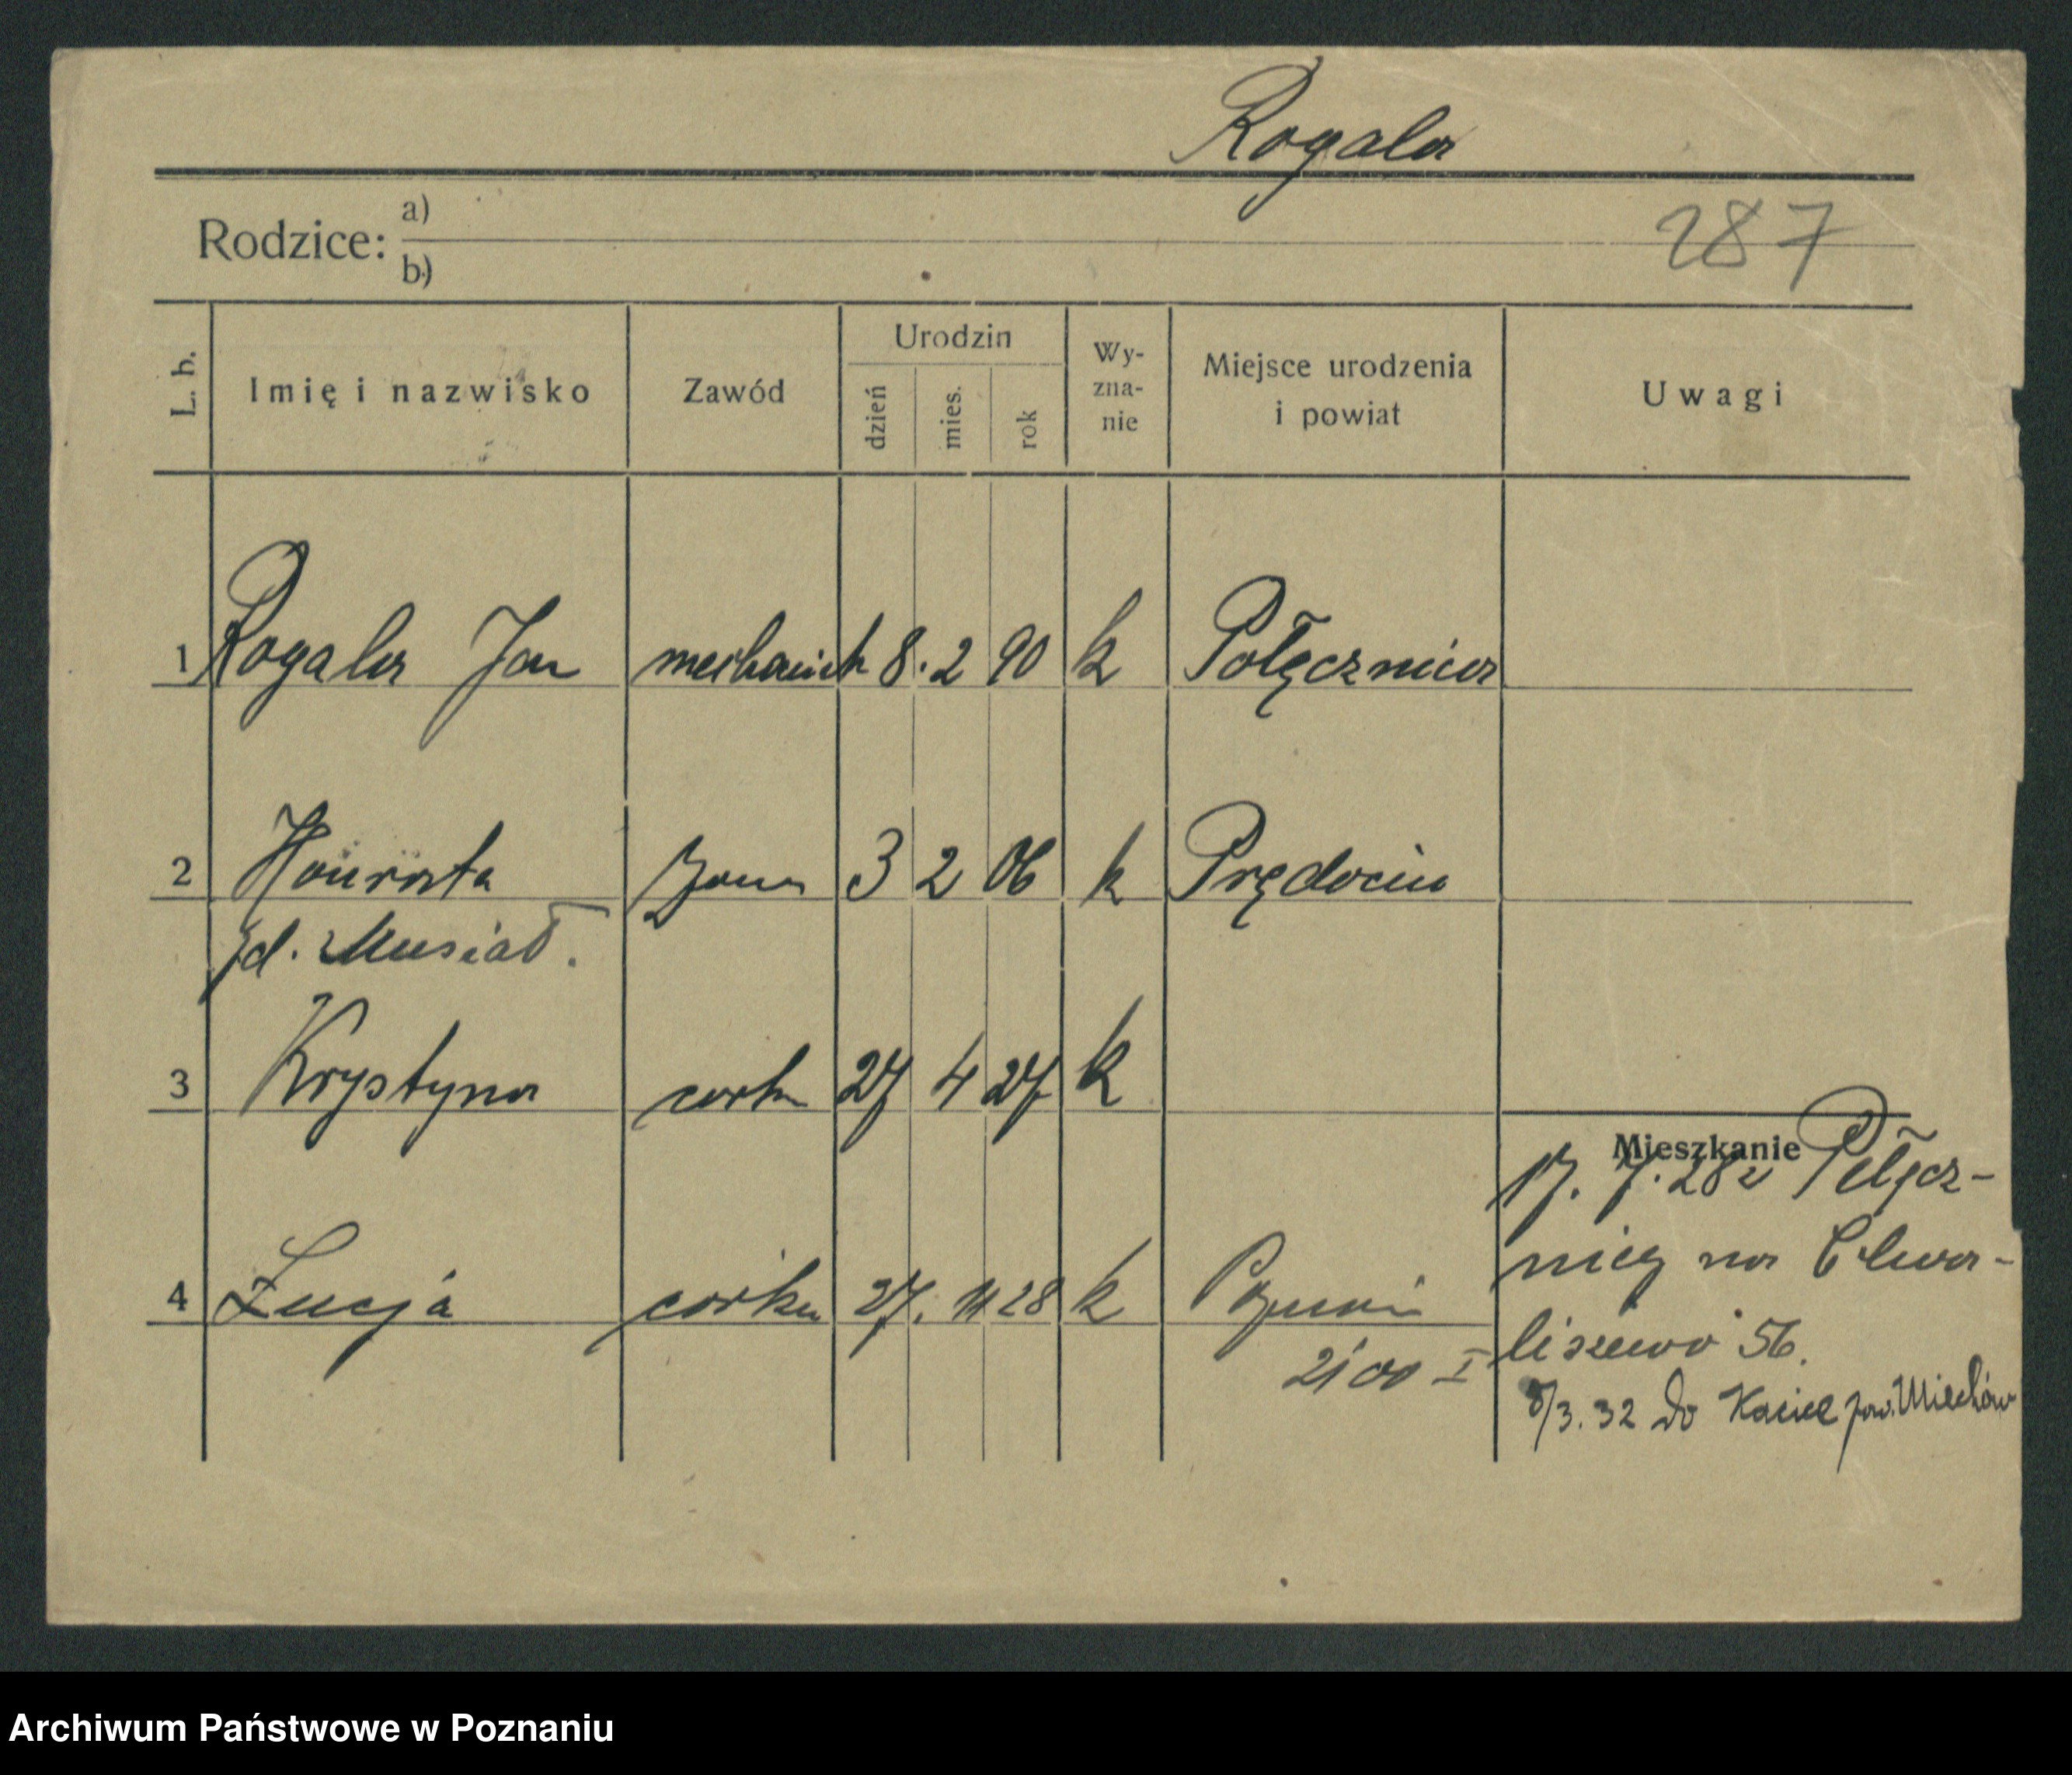 Rogala
Rodzice: a)
b)
287
L. b. Imię i nazwisko Zawód Urodzin dzień mies. rok Wy-zna-nie Miejsce urodzenia i powiat Uwagi
1 Rogala Jan mechanik 8. 2 90 k Połęcznica
2 Honorata żona 3 2 06 k Prędocin
zd. Musiał.
3 Krystyna córka 27 4 27 k
4 Łucja córka 27. 11 28 k Poznań
2100 I
Mieszkanie
17. 7. 28 z Pełęcz-
nicy na Chwa-
liszewo 56.
8/3. 32 do Kacice pow. Miechów
Archiwum Państwowe w Poznaniu